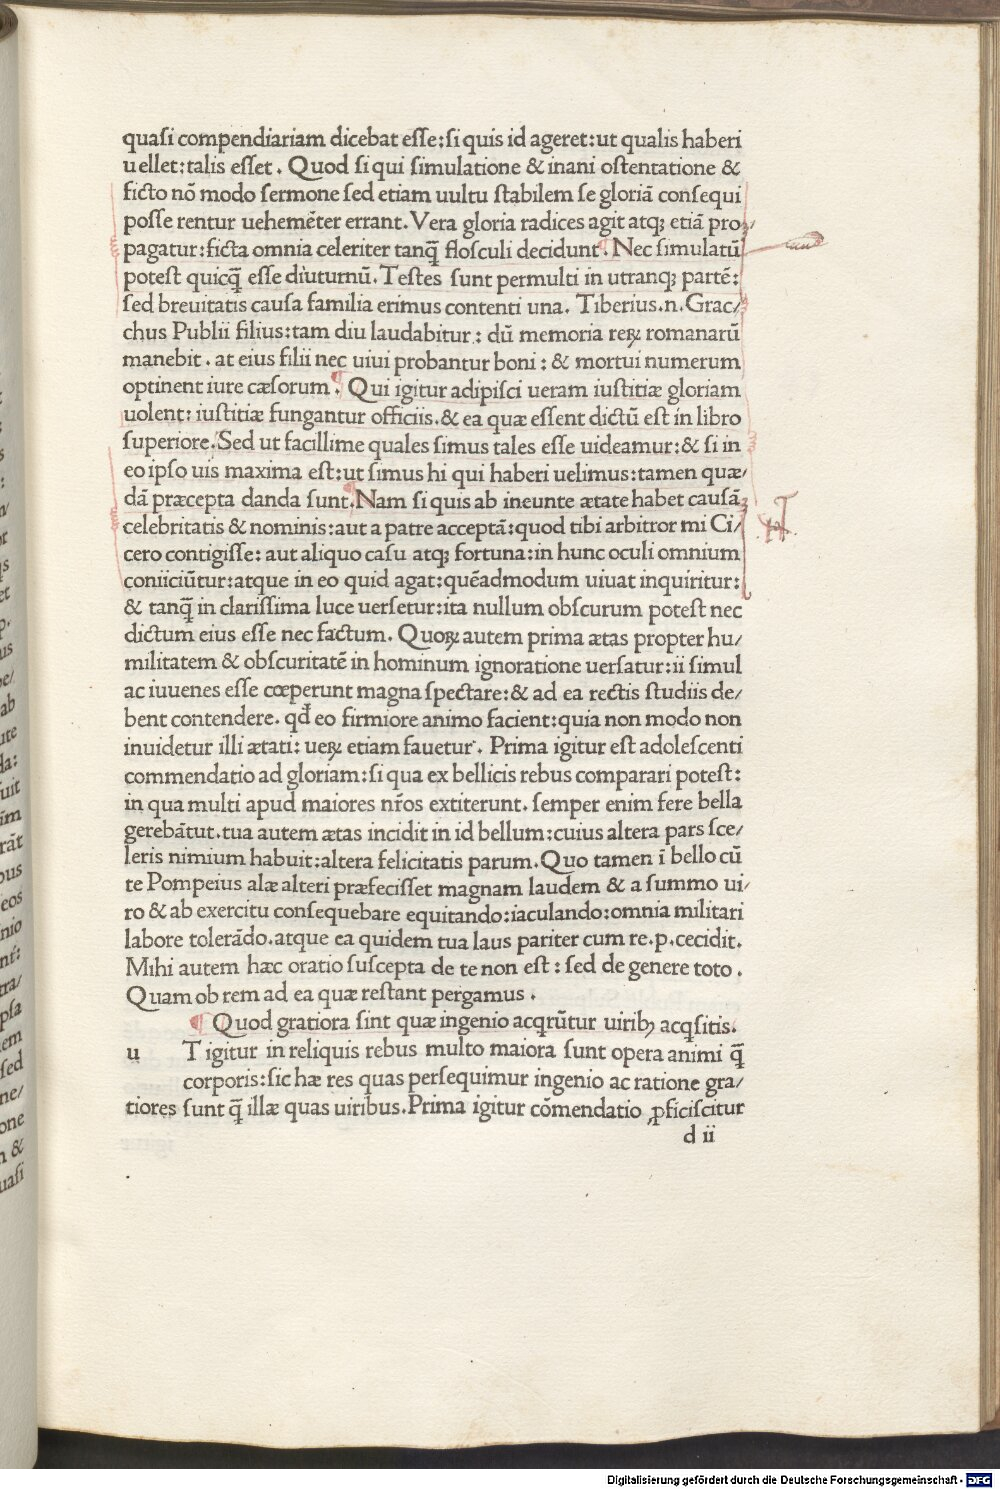 quasi compendiariam dicebat esse:si quis id ageret:ut qualis haberi
uellet:talis esset. Quod si qui simulatione & inani ostentatione &
ficto nō modo sermone sed etiam uultu stabilem se gloriā consequi
posse rentur uehemēter errant. Vera gloria radices agit atqꝫ etiā pro/
pagatur:ficta omnia celeriter tanq̄ flosculi decidunt. Nec simulatū
potest quicq̄ esse diuturnū. Testes sunt permulti in utranqꝫ partē:
sed breuitatis causa familia erimus contenti una. Tiberius.n.Grac/
chus Publii filius:tam diu laudabitur: dū memoria reꝝ romanarū
manebit. at eius filii nec uiui probantur boni: & mortui numerum
optinent iure cæsorum. Qui igitur adipisci ueram iustitiæ gloriam
uolent: iustitiæ fungantur officiis.& ea quæ essent dictū est in libro
superiore. Sed ut facillime quales simus tales esse uideamur:& si in
eo ipso uis maxima est:ut simus hi qui haberi uelimus:tamen quæ/
dā præcepta danda sunt. Nam si quis ab ineunte ætate habet causā
celebritatis & nominis:aut a patre acceptā:quod tibi arbitror mi Ci/
cero contigisse: aut aliquo casu atqꝫ fortuna:in hunc oculi omnium
coniiciūtur:atque in eo quid agat:quēadmodum uiuat inquiritur:
& tanq̄ in clarissima luce uersetur:ita nullum obscurum potest nec
dictum eius esse nec factum. Quoꝝ autem prima ætas propter hu/
militatem & obscuritatē in hominum ignoratione uersatur:ii simul
ac iuuenes esse cœperunt magna spectare:& ad ea rectis studiis de/
bent contendere. qđ eo firmiore animo facient:quia non modo non
inuidetur illi ætati: ueꝝ etiam fauetur. Prima igitur est adolescenti
commendatio ad gloriam:si qua ex bellicis rebus comparari potest:
in qua multi apud maiores nr̄os extiterunt. semper enim fere bella
gerebātut.tua autem ætas incidit in id bellum:cuius altera pars sce/
leris nimium habuit:altera felicitatis parum. Quo tamen ī bello cū
te Pompeius alæ alteri præfecisset magnam laudem & a summo ui/
ro & ab exercitu consequebare equitando:iaculando:omnia militari
labore tolerādo.atque ea quidem tua laus pariter cum re.p.cecidit.
Mihi autem hæc oratio suscepta de te non est: sed de genere toto.
Quam ob rem ad ea quæ restant pergamus.
¶ Quod gratiora sint quæ ingenio acqrūtur uiribꝫ acqsitis.
u T igitur in reliquis rebus multo maiora sunt opera animi q̄
corporis:sic hæ res quas persequimur ingenio ac ratione gra/
tiores sunt q̄ illæ quas uiribus. Prima igitur cōmendatio ꝓficiscitur
d ii
Digitalisierung gefördert durch die Deutsche Forschungsgemeinschaft - DFG